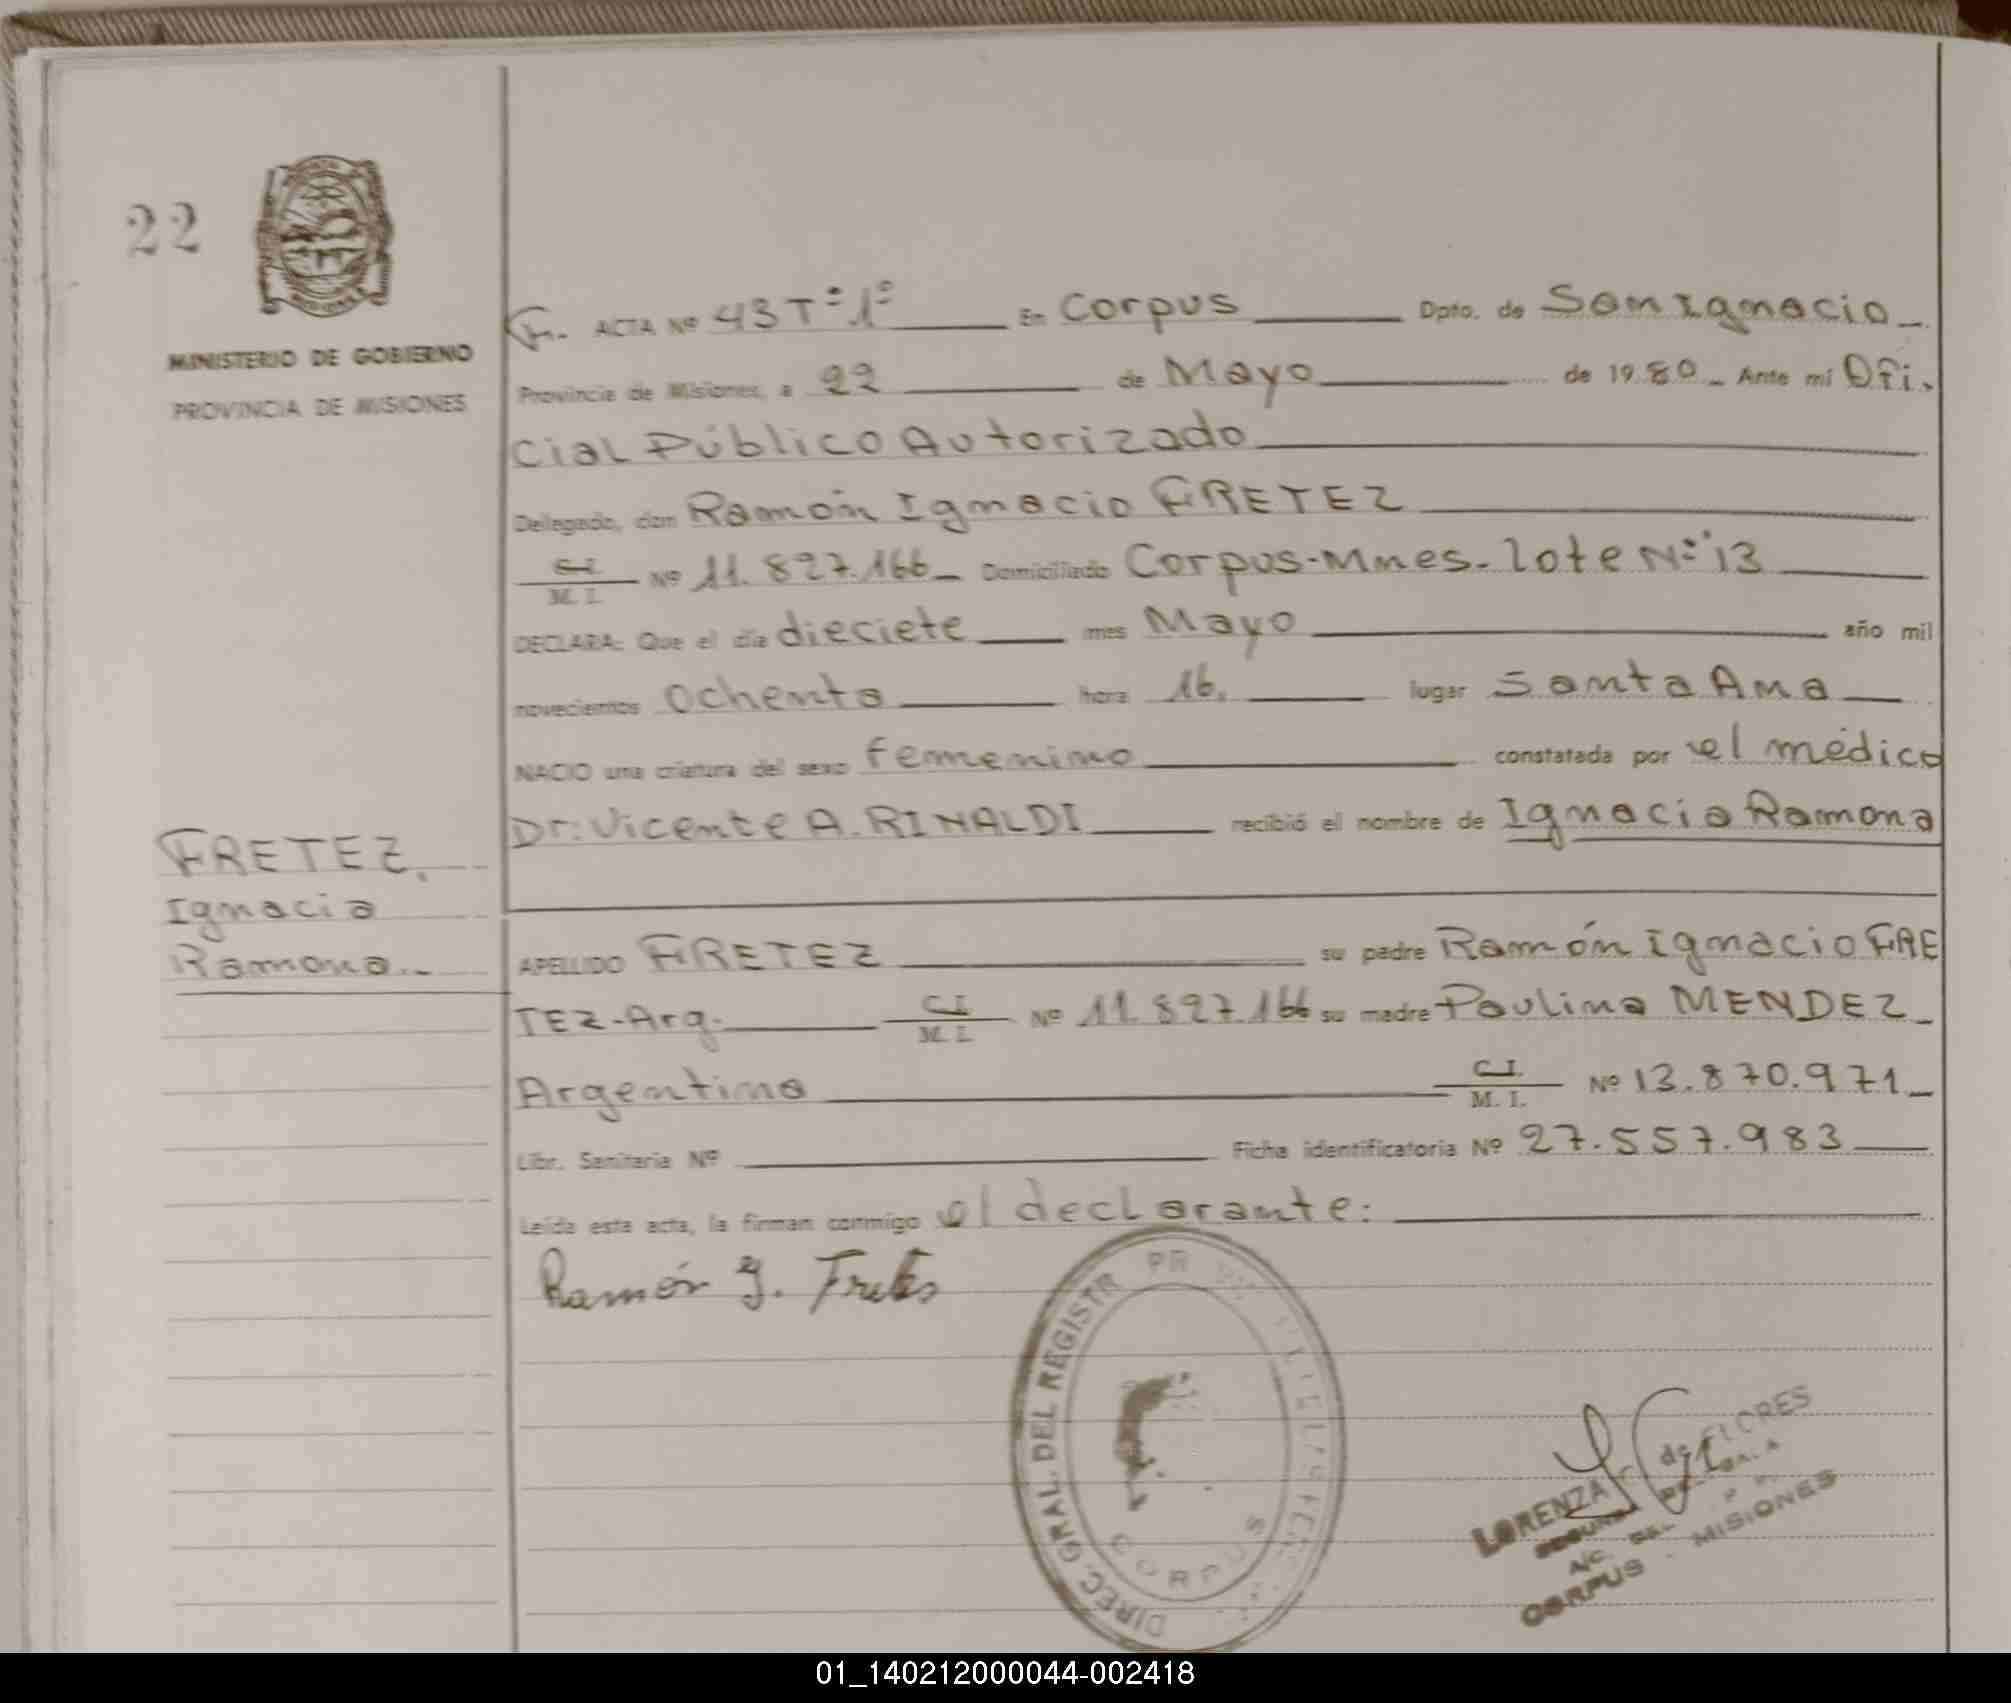 22
MINISTERIO DE GOBIERNO
PROVINCIA DE MISIONES
F. ACTA Nº 43 Tº 1º En Corpus Dpto. de San Ignacio
Provincia de Misiones, a 22 de Mayo de 1980 Ante mí Ofi.
cial Público Autorizado
Delegado, don Ramón Ignacio FRETEZ
C.I. M. I. Nº 11.827.166 Domiciliado Corpus-Mnes. lote Nº 13
DECLARA: Que el día dieciete mes Mayo año mil
novecientos ochenta hora 16. lugar Santa Ana
NACIO una criatura del sexo femenino constatada por el médico
Dr: Vicente A. RINALDI recibió el nombre de Ignacia Ramona
FRETEZ.
Ignacia
Ramona..
APELLIDO FRETEZ su padre Ramón Ignacio FRE
TEZ-Arg. C.I. M. I. Nº 11.827.166 su madre Paulina MENDEZ
Argentina C.I. M. I. Nº 13.870.971
Libr. Sanitaria Nº Ficha identificatoria Nº 27.557.983
Leída esta acta, la firman conmigo el declarante:
Ramón Y. Fretes
DIREC. GRAL. DEL REGISTR PR
CORPUS
LORENZA de FLORES
A/C. DEL
CORPUS - MISIONES
01_140212000044-002418